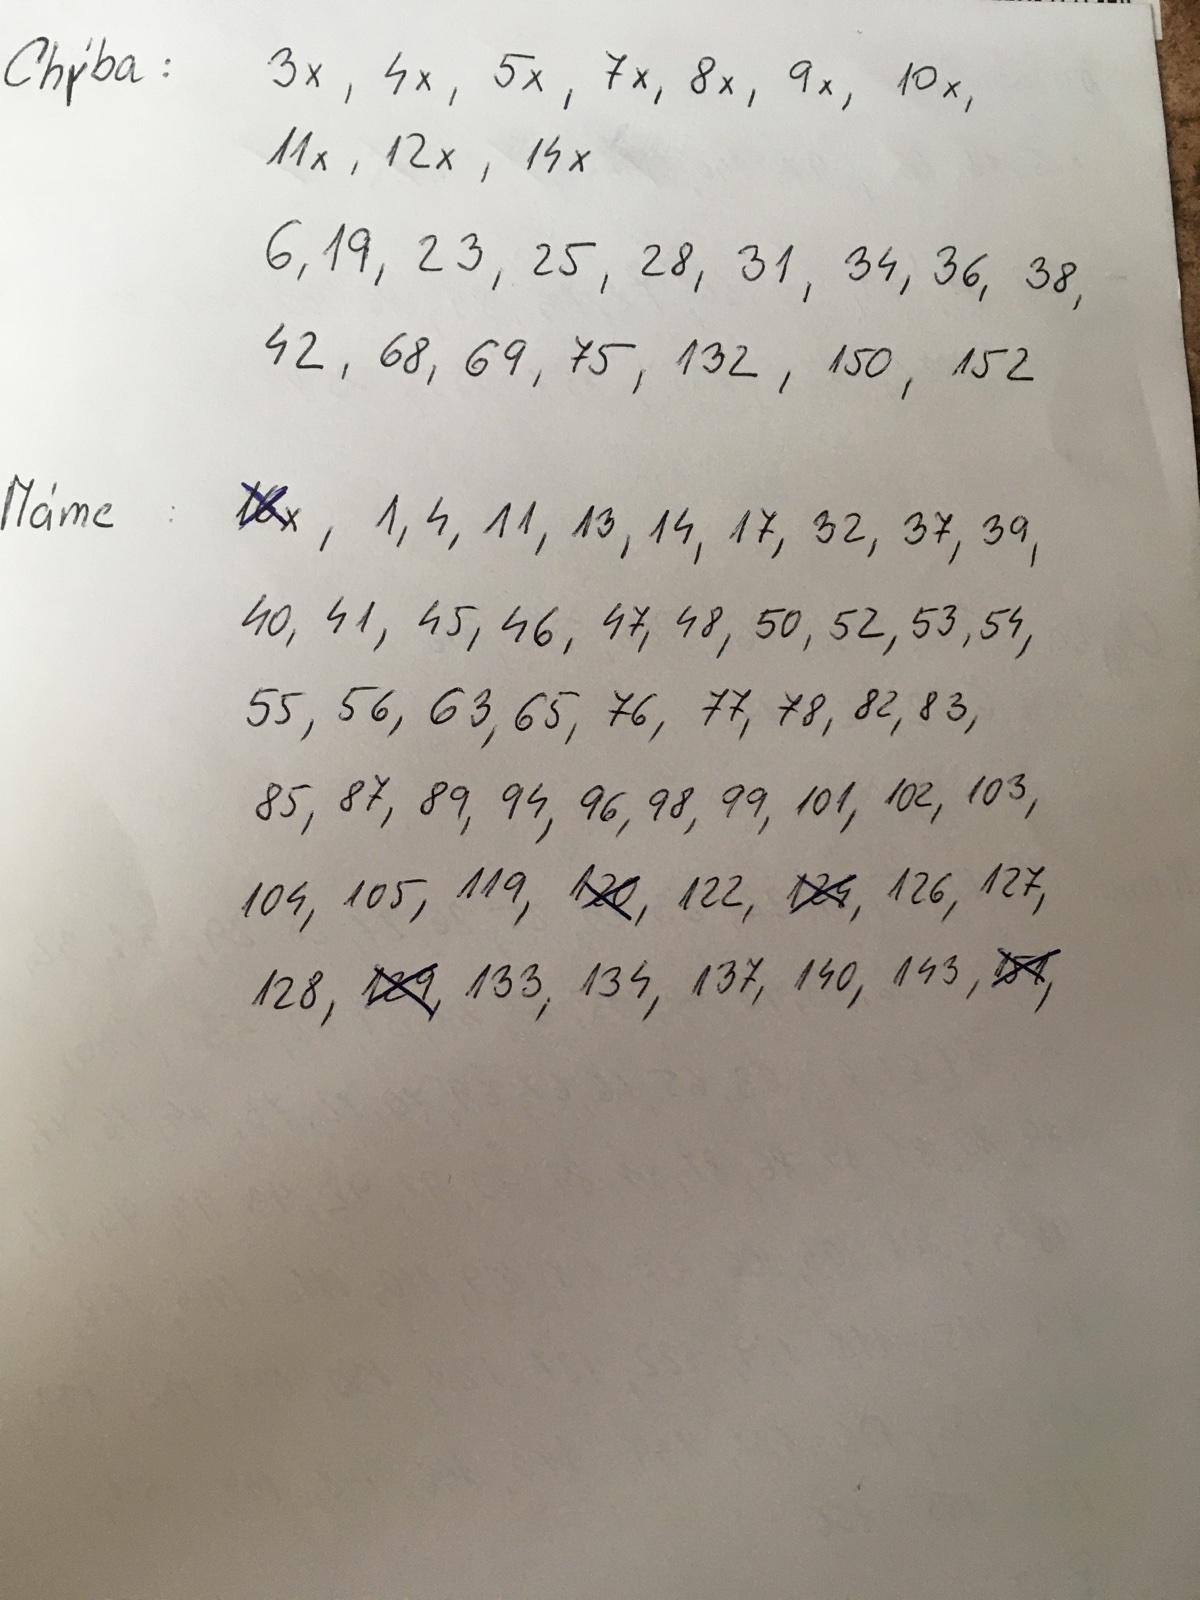 Chýba : 3x, 4x, 5x, 7x, 8x, 9x, 10x,
11x, 12x, 14x
6, 19, 23, 25, 28, 31, 34, 36, 38,
42, 68, 69, 75, 132, 150, 152
Máme : 16x, 1, 4, 11, 13, 14, 17, 32, 37, 39,
40, 41, 45, 46, 47, 48, 50, 52, 53, 54,
55, 56, 63, 65, 76, 77, 78, 82, 83,
85, 87, 89, 94, 96, 98, 99, 101, 102, 103,
104, 105, 119, 120, 122, 124, 126, 127,
128, 129, 133, 134, 137, 140, 143, 151,